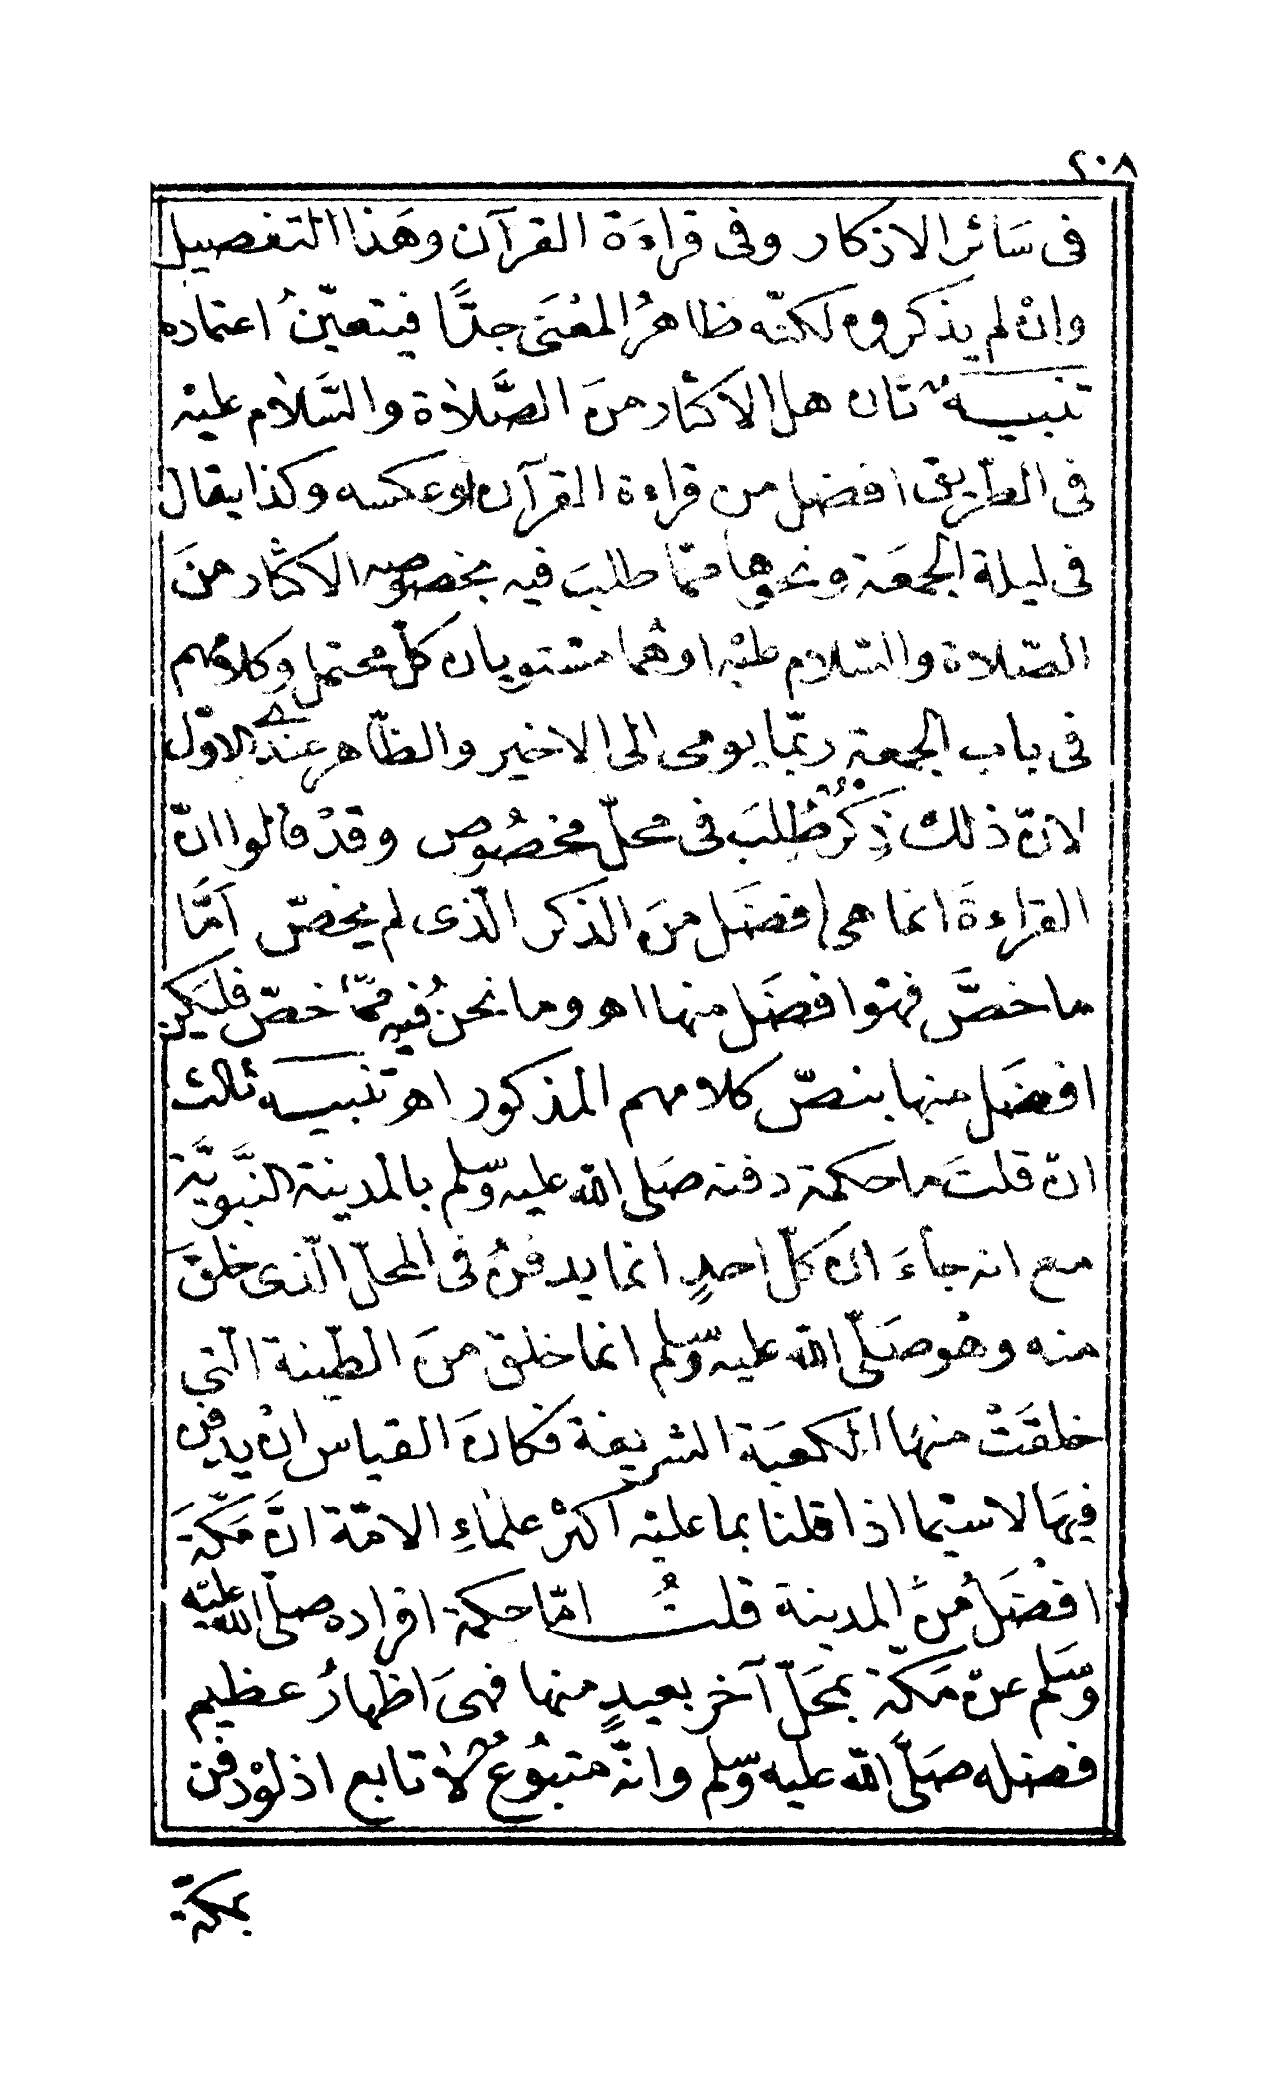 ٢٠٨
فى سَائر الاذكار وفى قراءَة القرآن وهَذا التفصيل
وانْ لم يذكروه لكنّه ظاهرُ المعْنَى جدًّا فيتعيّنُ اعتماده
تنبيــهٌ ثان هل الاكثار منَ الصَّلاة والسَّلام عليْه
فى الطّريق افضل من قراءة القرآن اوعكسه وكذا يقال
فى ليلة الجمعَة ونحوها ممّا طلبَ فيه بخصوصه الاكثار منَ
الصّلاة والسّلام عليْه اوهُما مستويان كلّ محتمل وكلامهم
فى باب الجمعة ربّما يومى الى الاخير والظّاهر عندى الاوّل
لانّ ذلك ذكرٌ طُلِبَ فى محلّ مخصُوص وقدْ قالوا انّ
القراءةَ انما هى افضَل منَ الذكر الّذى لم يخصّ امَّا
ما خصَّ فهوا فضَل منها اهـ وما نحنُ فيه ممّا خصّ فليَكن
افضَل منها بنصّ كلامهم المذكور اهـ تنبيــه ثالث
انّ قلتَ ما حكمة دفنه صَلى الله عليه وسّلم بالمدينة النَّبويَّة
مع انه جاءَ انّ كلّ احدٍ انما يدفنُ فى المحلّ الّذى خلقَ
منه وهُو صَلّى الله عليه وسّلم انما خلق منَ الطّينة الّتي
خلقَتْ منهَا الكعبَة الشريفة فكانَ القياس انْ يدفن
فيهَا لاسيّما اذا قلنا بما عليْه اكثرْ علمَاءِ الامّة انَّ مَكّةَ
افْضَلُ مْنَ المدينة قلتُ امّا حكمة افراده صلّى الله عليْه
وسَلم عنْ مَكّة بمحَلّ آخر بعيدٍ منها فهىَ اظهارُ عظيم
فضله صَلَّى الله عليه وسّلم وانّه متبُوعٌ لا تابع اذ لوْ دفن
بمكة